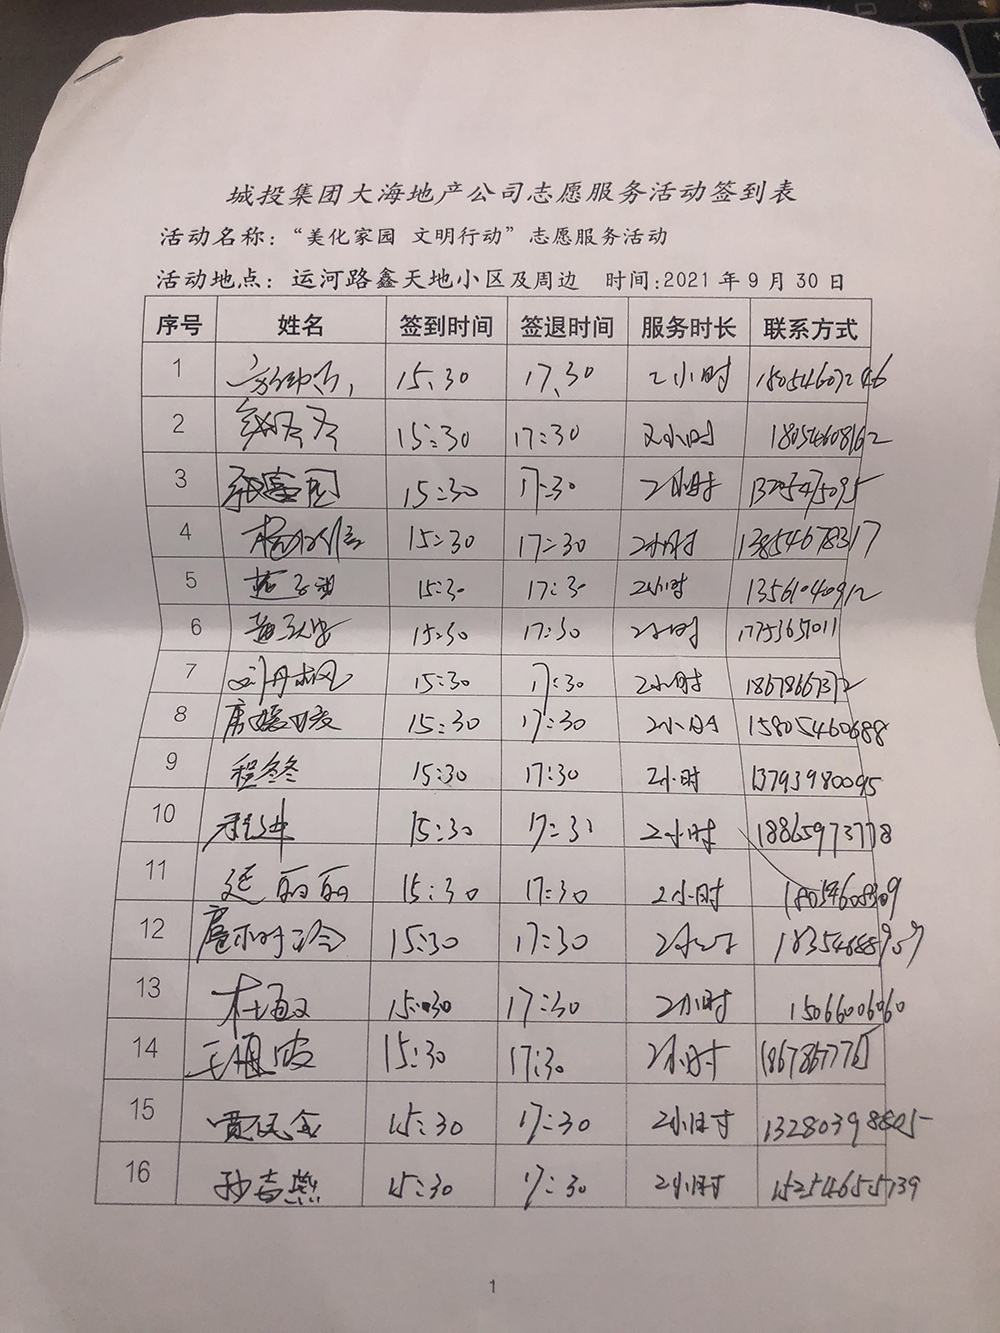 城投集团大海地产公司志愿服务活动签到表
活动名称：“美化家园 文明行动”志愿服务活动
活动地点：运河路鑫天地小区及周边 时间:2021年9月30日
序号 姓名 签到时间 签退时间 服务时长 联系方式
1 15:30 17:30 2小时 18054607246
2 15:30 17:30 2小时 18054608162
3 15:30 17:30 2小时 13205475095
4 15:30 17:30 2小时 13854678317
5 15:30 17:30 2小时 13561040912
6 15:30 17:30 2小时
7 刘丹枫 15:30 17:30 2小时 18678667372
8 15:30 17:30 2小时 15805460688
9 程冬冬 15:30 17:30 2小时 13793980095
10 程进 15:30 17:30 2小时 18865973778
11 延丽丽 15:30 17:30 2小时 18054608309
12 15:30 17:30 2小时
13 杜敏 15:30 17:30 2小时 15066006060
14 15:30 17:30 2小时
15 15:30 17:30 2小时 13280398805
16 孙吉燕 15:30 17:30 2小时 15254655139
1